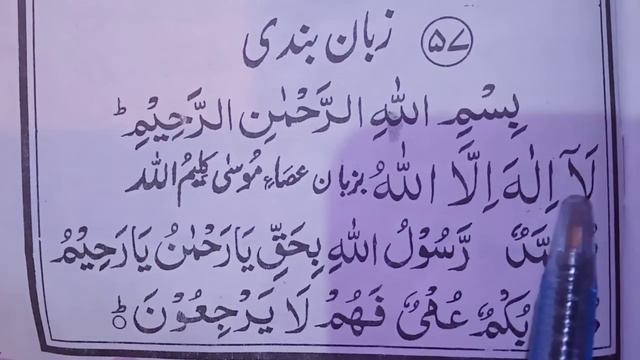 ۵۷ زبان بندی
بِسْمِ اللهِ الرَّحْمٰنِ الرَّحِیْمِ ط
لَآ اِلٰهَ اِلَّا اللهُ بزبان عصاءِ مُوسٰی کلیمُ اللہ
رَّسُوْلُ اللهِ بِحَقِّ یَا رَحْمٰنُ یَا رَحِیْمُ
بُکْمٌ عُمْیٌ فَهُمْ لَا یَرْجِعُوْنَ ط